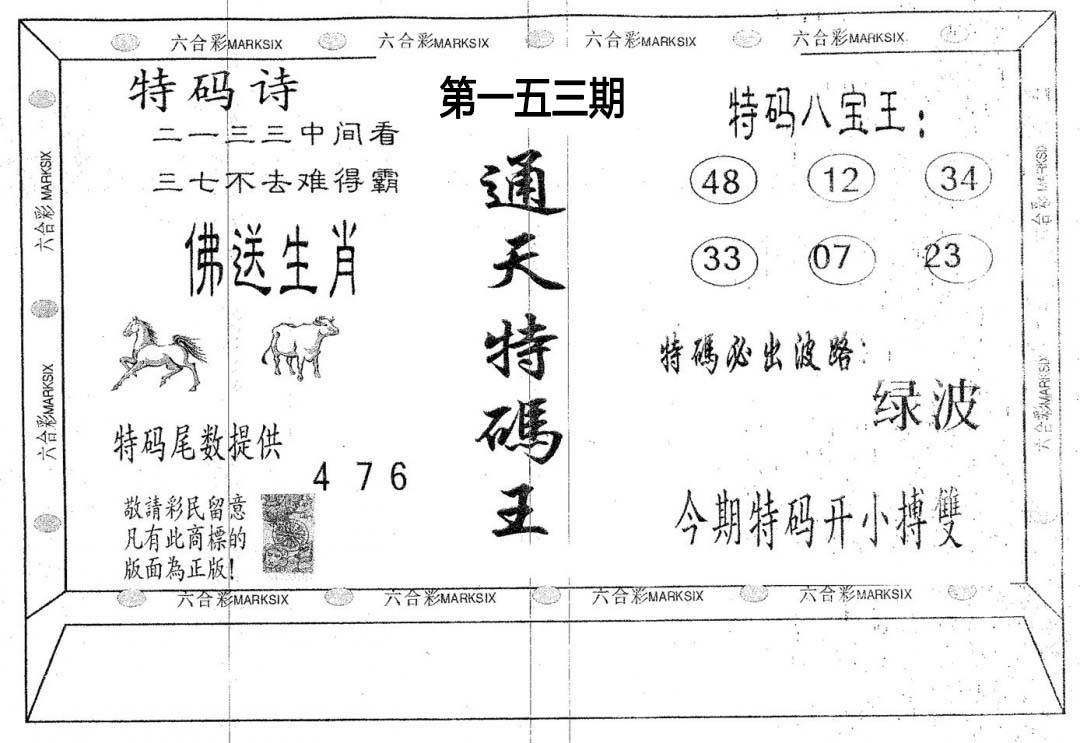 六合彩MARKSIX 六合彩MARKSIX 六合彩MARKSIX 六合彩MARKSIX
第一五三期
通天特碼王
特码诗
二一三三中间看
三七不去难得霸
佛送生肖
特码尾数提供
4 7 6
敬請彩民留意
凡有此商標的
版面為正版!
特码八宝王:
48 12 34
33 07 23
特碼必出波路:
绿波
今期特码开小搏雙
六合彩MARKSIX
六合彩MARKSIX
六合彩MARKSIX
六合彩MARKSIX
六合彩MARKSIX 六合彩MARKSIX 六合彩MARKSIX 六合彩MARKSIX